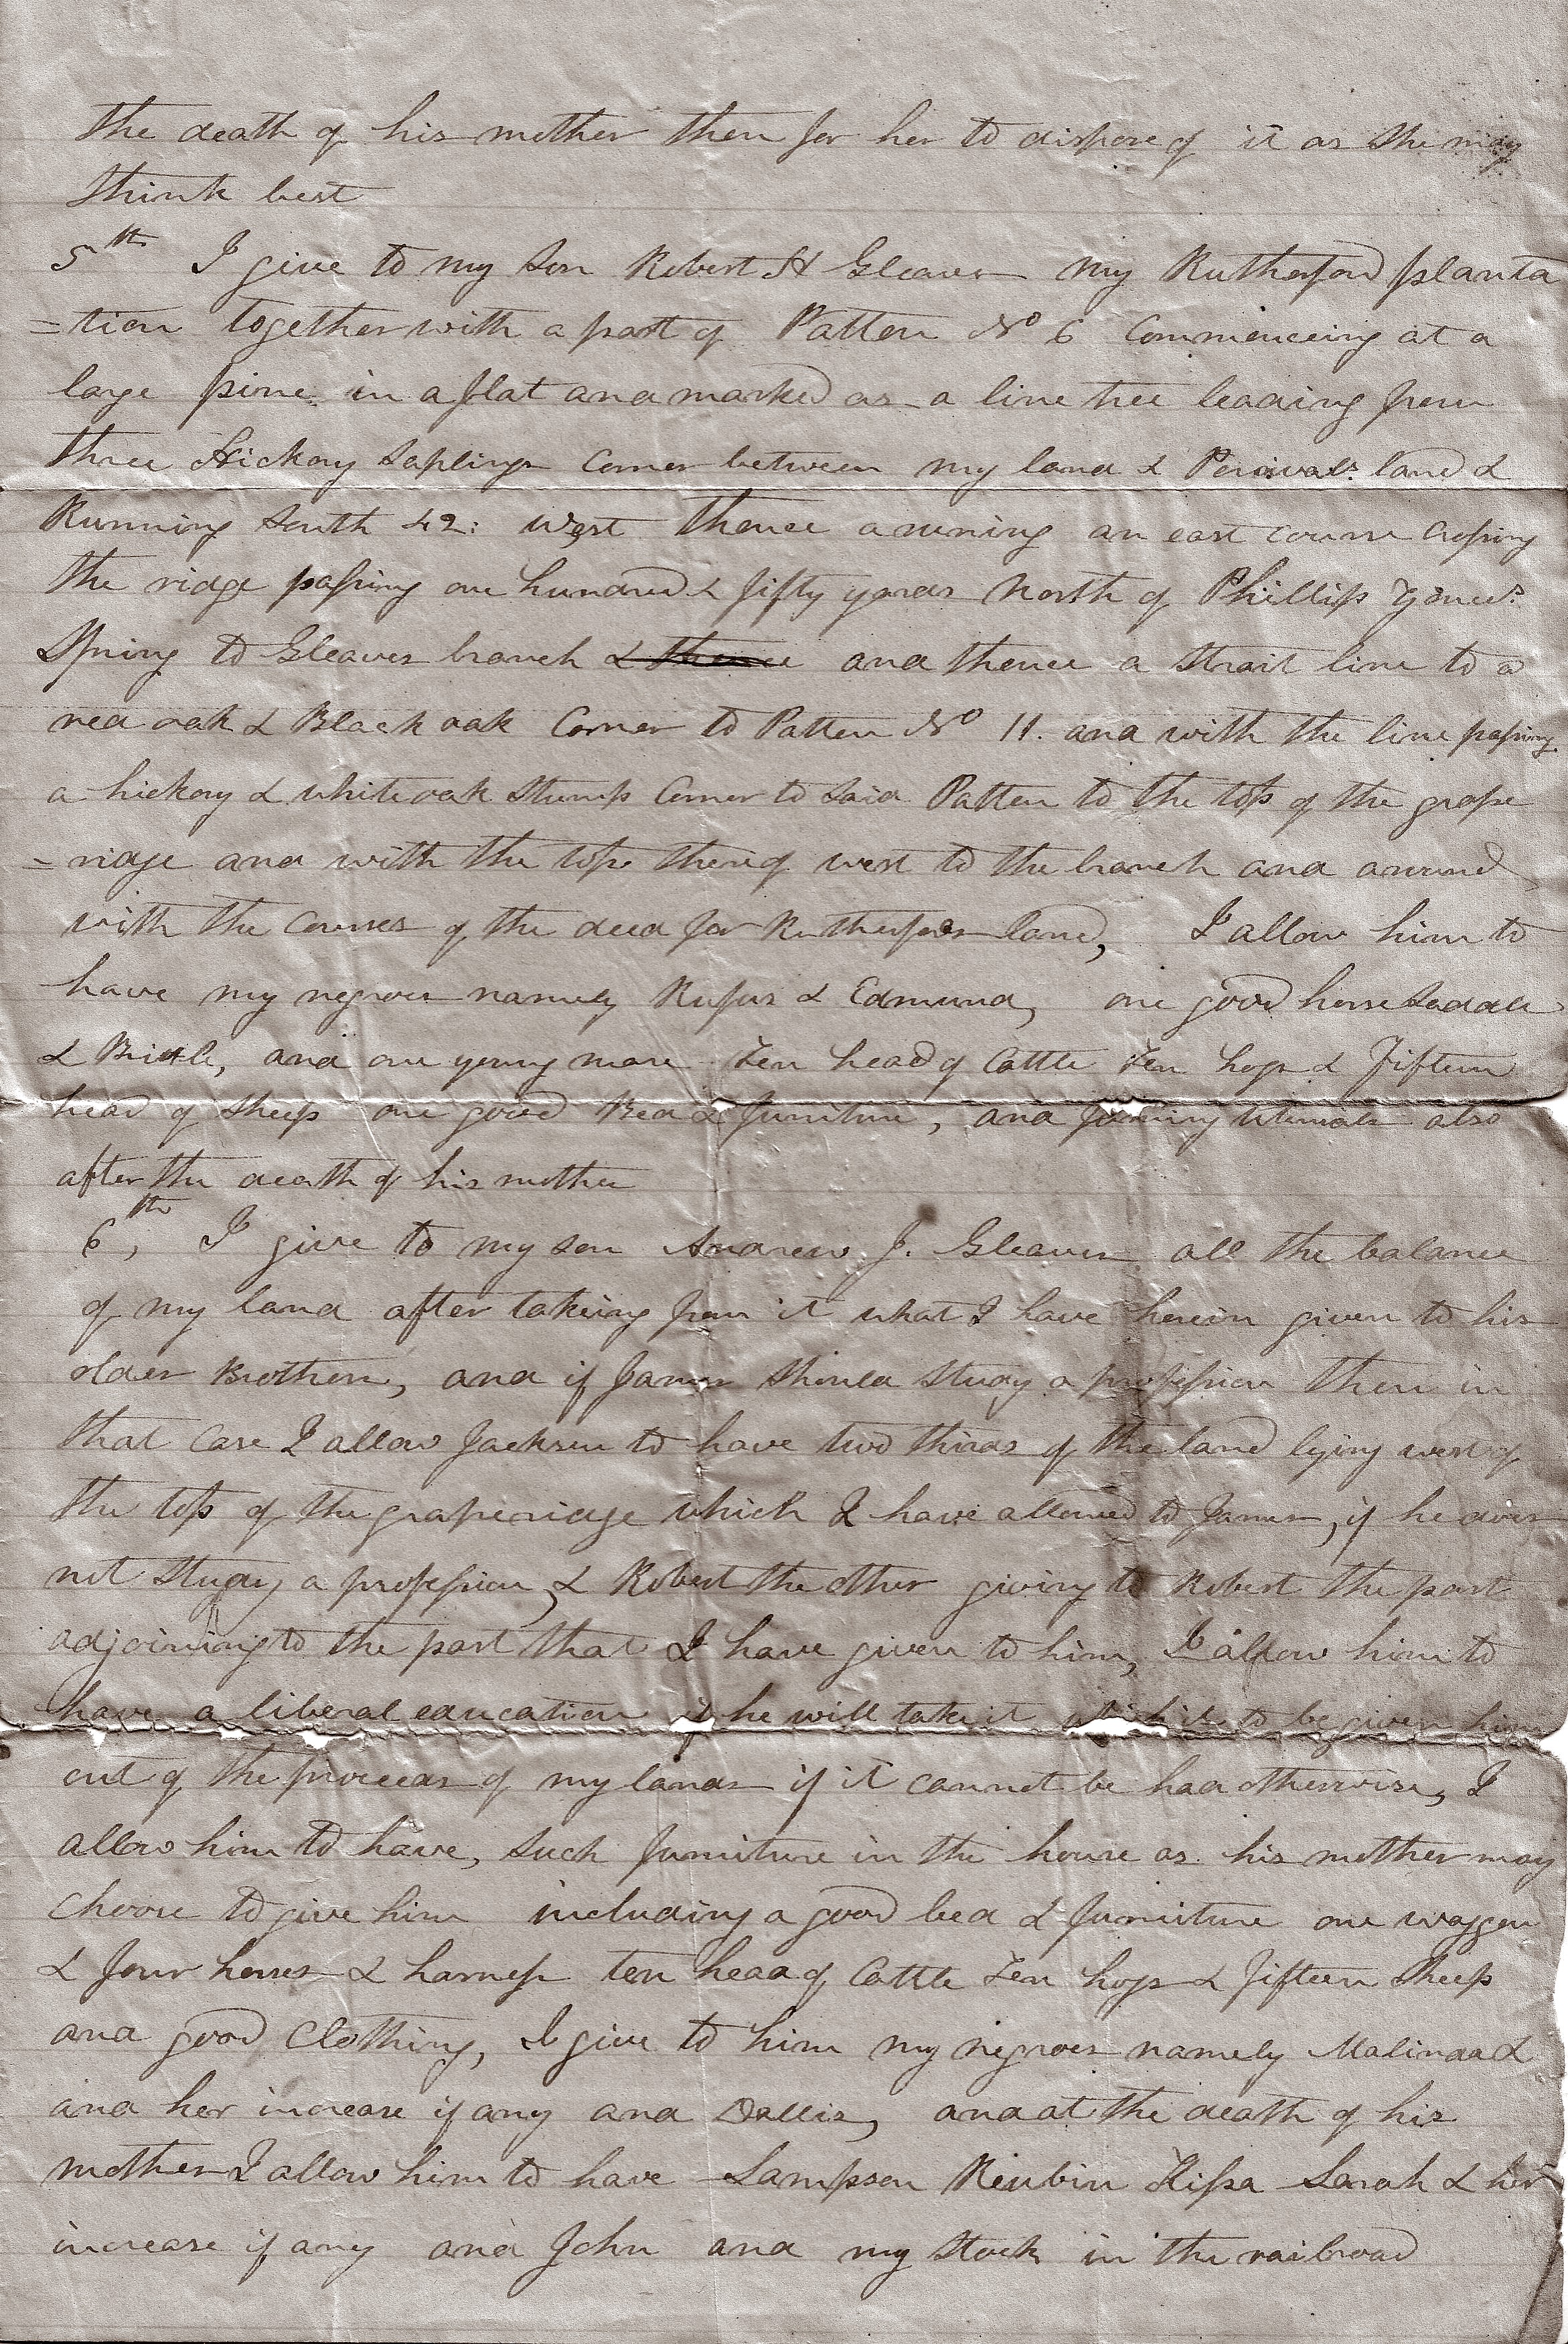 the death of his mother then for her to dispose of it as she may
think best
5th I give to my son Robert H Gleaves my Rutherford planta
=tion together with a part of Patten No 6 Commencing at a
large pine in a flat and marked as a line tree leading from
three Hickory Saplings Corner between my land & Percivals land &
Running South 42: West thence a runing an east course crossing
the ridge passing one hundred & fifty yards North of Phillip
Spring to Gleaves branch & thence and thence a strait line to a
red oak & Black oak Corner to Patten No 11. and with the line passing
a hickory & white oak Stump Corner to Said Patten to the top of the grape
=ridge and with the top thereof west to the branch and around
with the courses of the deed for Rutherfords land, I allow him to
have my negroes namely Rufus & Edmund, one good horse Saddle
& Bridle, and one young mare Ten head of Cattle Ten hogs & Fifteen
head of sheep one good Bed & furniture, and farming utensals also
after the death of his mother
6th, I give to my son Andrew J. Gleaves all the balance
of my land after takeing from it what I have herein given to his
older Brothers, and if James should study a profession then in
that case I allow Jackson to have two thirds of the land lying west of
the top of the grape ridge which I have allowed to James, if he does
not study a profession, & Robert the other giving to Robert the part
adjoining to the part that I have given to him, I allow him to
have a liberal education if he will take it which is to be given him
out of the proceeds of my lands if it cannot be had otherwise, I
allow him to have, such furniture in the house as his mother may
choose to give him including a good bed & furniture one waggon
& four horses & harness ten head of Cattle Ten hogs & fifteen Sheep
and good Clothing, I give to him my negroes namely Malinda &
and her increase if any and Dallis, and at the death of his
mother I allow him to have Sampson Reubin Sarah & her
increase if any and John and my stock in the railroad